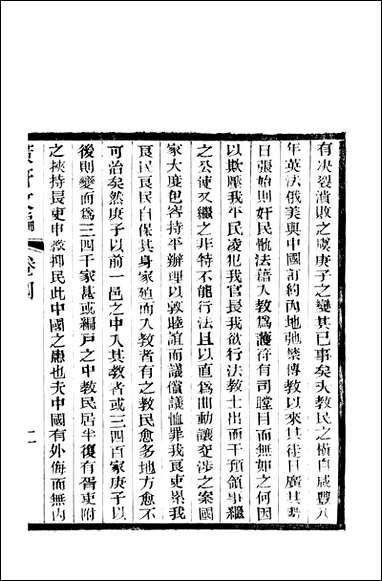 有决裂潰敗之虞庚子之變其已事矣夫教民之橫自咸豐八
年英法俄美與中國訂約內地弛禁傳教以來其徒日廣其勢
日張始則奸民骫法藉入教爲護符有司瞠目而無如之何因
以欺壓我平民凌犯我官長我欲行法教士出而干預領事繼
之公使又繼之非特不能行法且以直爲曲動讓交涉之案國
家大度包容持平辦理以敦睦誼而議償議恤罪我良吏累我
良民良民自保其身家殖而入教者有之教民愈多地方愈不
可治矣然庚子以前一邑之中入其教者或三四百家庚子以
後則變而爲三四千家甚或編戶之中教民居半復有胥吏附
之挾持長吏申教抑民此中國之患也夫中國有外侮而無內
文編
卷四
二